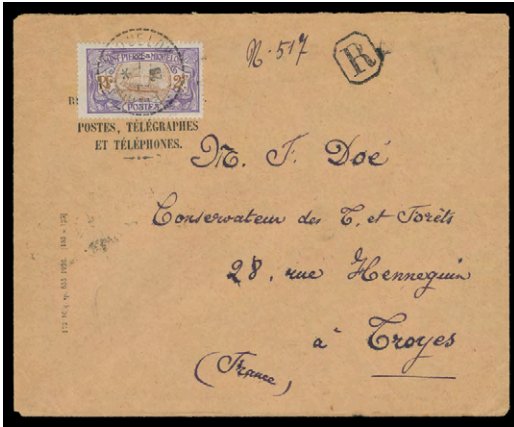 N. 517
R
ST PIERRE & MIQUELON
2F
POSTES
POSTES, TÉLÉGRAPHES
ET TÉLÉPHONES.
M. F. Doé
Conservateur des E. et Forêts
28, rue Hennequin
à Troyes
(France)